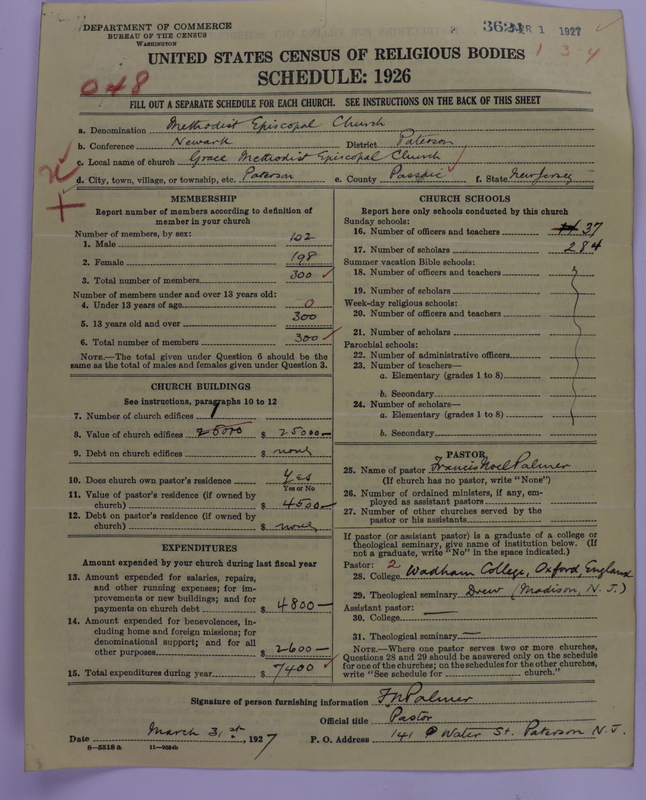 DEPARTMENT OF COMMERCE
BUREAU OF THE CENSUS
WASHINGTON
APR 1 1927
1 3 4
UNITED STATES CENSUS OF RELIGIOUS BODIES
048
SCHEDULE: 1926
FILL OUT A SEPARATE SCHEDULE FOR EACH CHURCH. SEE INSTRUCTIONS ON THE BACK OF THIS SHEET
a. Denomination Methodist Episcopal Church
b. Conference Newark District Paterson
c. Local name of church Grace Methodist Episcopal Church
d. City, town, village, or township, etc. Paterson e. County Passaic f. State New Jersey
MEMBERSHIP
Report number of members according to definition of
member in your church
Number of members, by sex:
1. Male 102
2. Female 198
3. Total number of members 300
Number of members under and over 13 years old:
4. Under 13 years of age 0
5. 13 years old and over 300
6. Total number of members 300
NOTE.—The total given under Question 6 should be the
same as the total of males and females given under Question 3.
CHURCH BUILDINGS
See instructions, paragraphs 10 to 12
7. Number of church edifices 1
8. Value of church edifices 25000 $ 25000—
9. Debt on church edifices $ none
10. Does church own pastor's residence Yes
Yes or No
11. Value of pastor's residence (if owned by
church) $ 4500—
12. Debt on pastor's residence (if owned by
church) $ none
EXPENDITURES
Amount expended by your church during last fiscal year
13. Amount expended for salaries, repairs,
and other running expenses; for im-
provements or new buildings; and for
payments on church debt $ 4800—
14. Amount expended for benevolences, in-
cluding home and foreign missions; for
denominational support; and for all
other purposes $ 2600—
15. Total expenditures during year $ 7400
CHURCH SCHOOLS
Report here only schools conducted by this church
Sunday schools:
16. Number of officers and teachers 37
17. Number of scholars 284
Summer vacation Bible schools:
18. Number of officers and teachers
19. Number of scholars
Week-day religious schools:
20. Number of officers and teachers
21. Number of scholars
Parochial schools:
22. Number of administrative officers
23. Number of teachers—
a. Elementary (grades 1 to 8)
b. Secondary
24. Number of scholars—
a. Elementary (grades 1 to 8)
b. Secondary
PASTOR
25. Name of pastor Francis Noel Palmer
(If church has no pastor, write "None")
26. Number of ordained ministers, if any, em-
ployed as assistant pastors
27. Number of other churches served by the
pastor or his assistants
If pastor (or assistant pastor) is a graduate of a college or
theological seminary, give name of institution below. (If
not a graduate, write "No" in the space indicated.)
Pastor: 2
28. College Wadham College, Oxford, England
29. Theological seminary Drew (Madison, N.J.)
Assistant pastor:
30. College —
31. Theological seminary —
NOTE.—Where one pastor serves two or more churches,
Questions 28 and 29 should be answered only on the schedule
for one of the churches; on the schedules for the other churches,
write "See schedule for church."
Signature of person furnishing information F N Palmer
Official title Pastor
Date March 31st, 1927 P. O. Address 141 Water St. Paterson N.J.
8—5518a 11—9584b